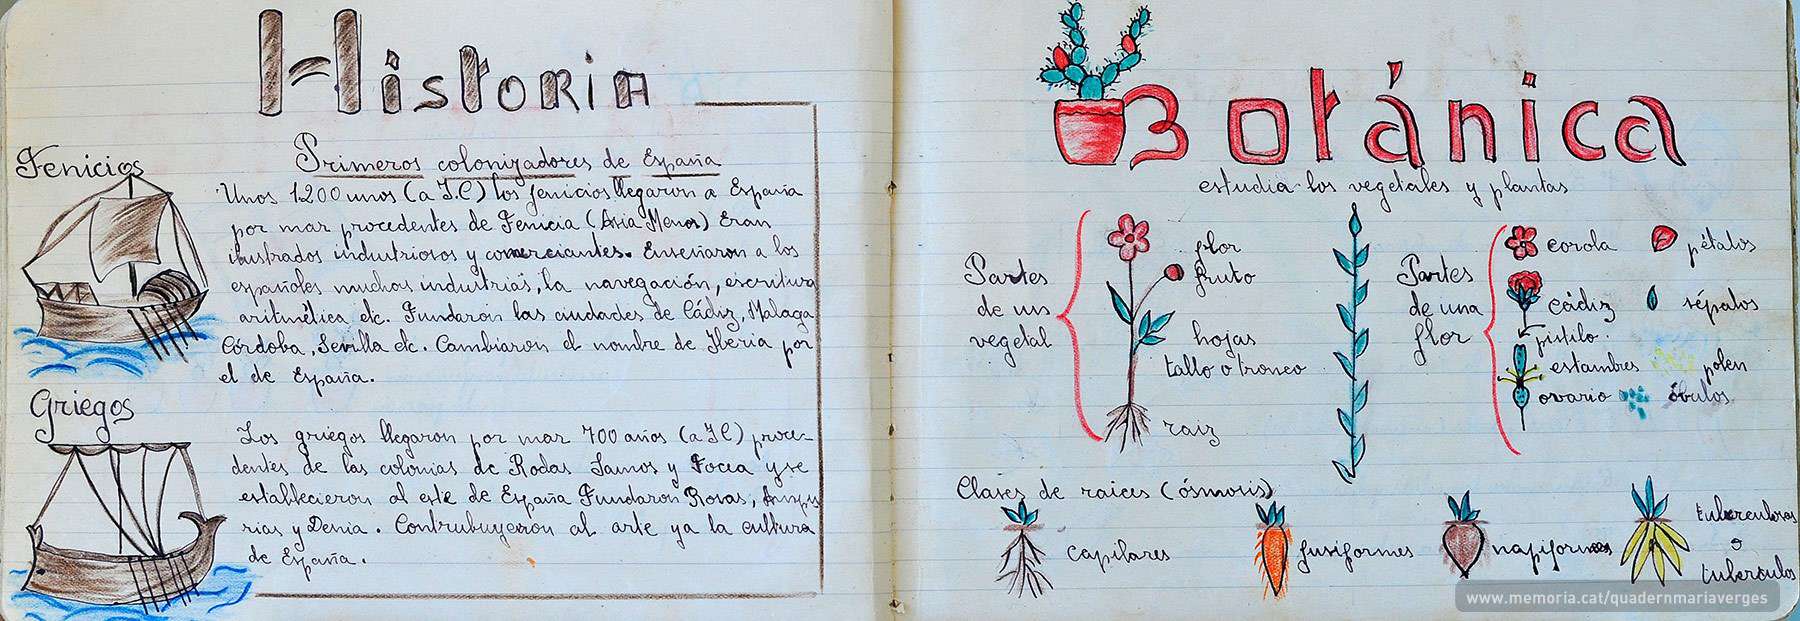 Historia
Primeros colonizadores de España
Fenicios
Unos 1200 unos (a J.C) los fenicios llegaron a España
por mar procedentes de Fenicia (Asia Menor) Eran
ilustrados industriosos y comerciantes. Enseñaron a los
españoles muchas industrias, la navegación, escritura
aritmética etc. Fundaron las ciudades de Cádiz, Malaga
Córdoba, Sevilla etc. Cambiaron el nombre de Iberia por
el de España.
Griegos
Los griegos llegaron por mar 700 años (a JC) proce-
dentes de las colonias de Rodas Samos y Focea y se
establecieron al este de España Fundaron Rosas, Ampu
rias y Denia. Contrubuyeron al arte ya la cultura
de España.
Botánica
estudia los vegetales y plantas
Partes
de un
vegetal
flor
fruto
hojas
tallo o tronco
raiz
Partes
de una
flor
corola
pétalos
cádiz
sépalos
pistilo.
estambres
polen
ovario
óbulos
Clases de raices (ósmosis)
capilares
fusiformes
napiformes
tuberculosas
o
tuberculos
www.memoria.cat/quadernmariaverges